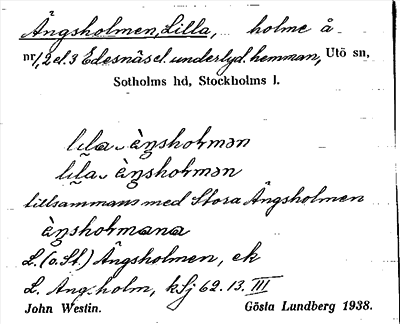 Ängsholmen, Lilla, holme å
nr 1, 2 el. 3 Edesnäs el. underlyd. hemman, Utö sn,
Sotholms hd, Stockholms l.
lɩla ὲŋshoƚmən
lɩ̃la ὲŋshoƚmən
tillsammans med Stora Ängsholmen
ὲŋshoƚmana
L. (o. St.) Ängsholmen, ek
L. Äng.holm, ksj 62. 13. III
John Westin. Gösta Lundberg 1938.